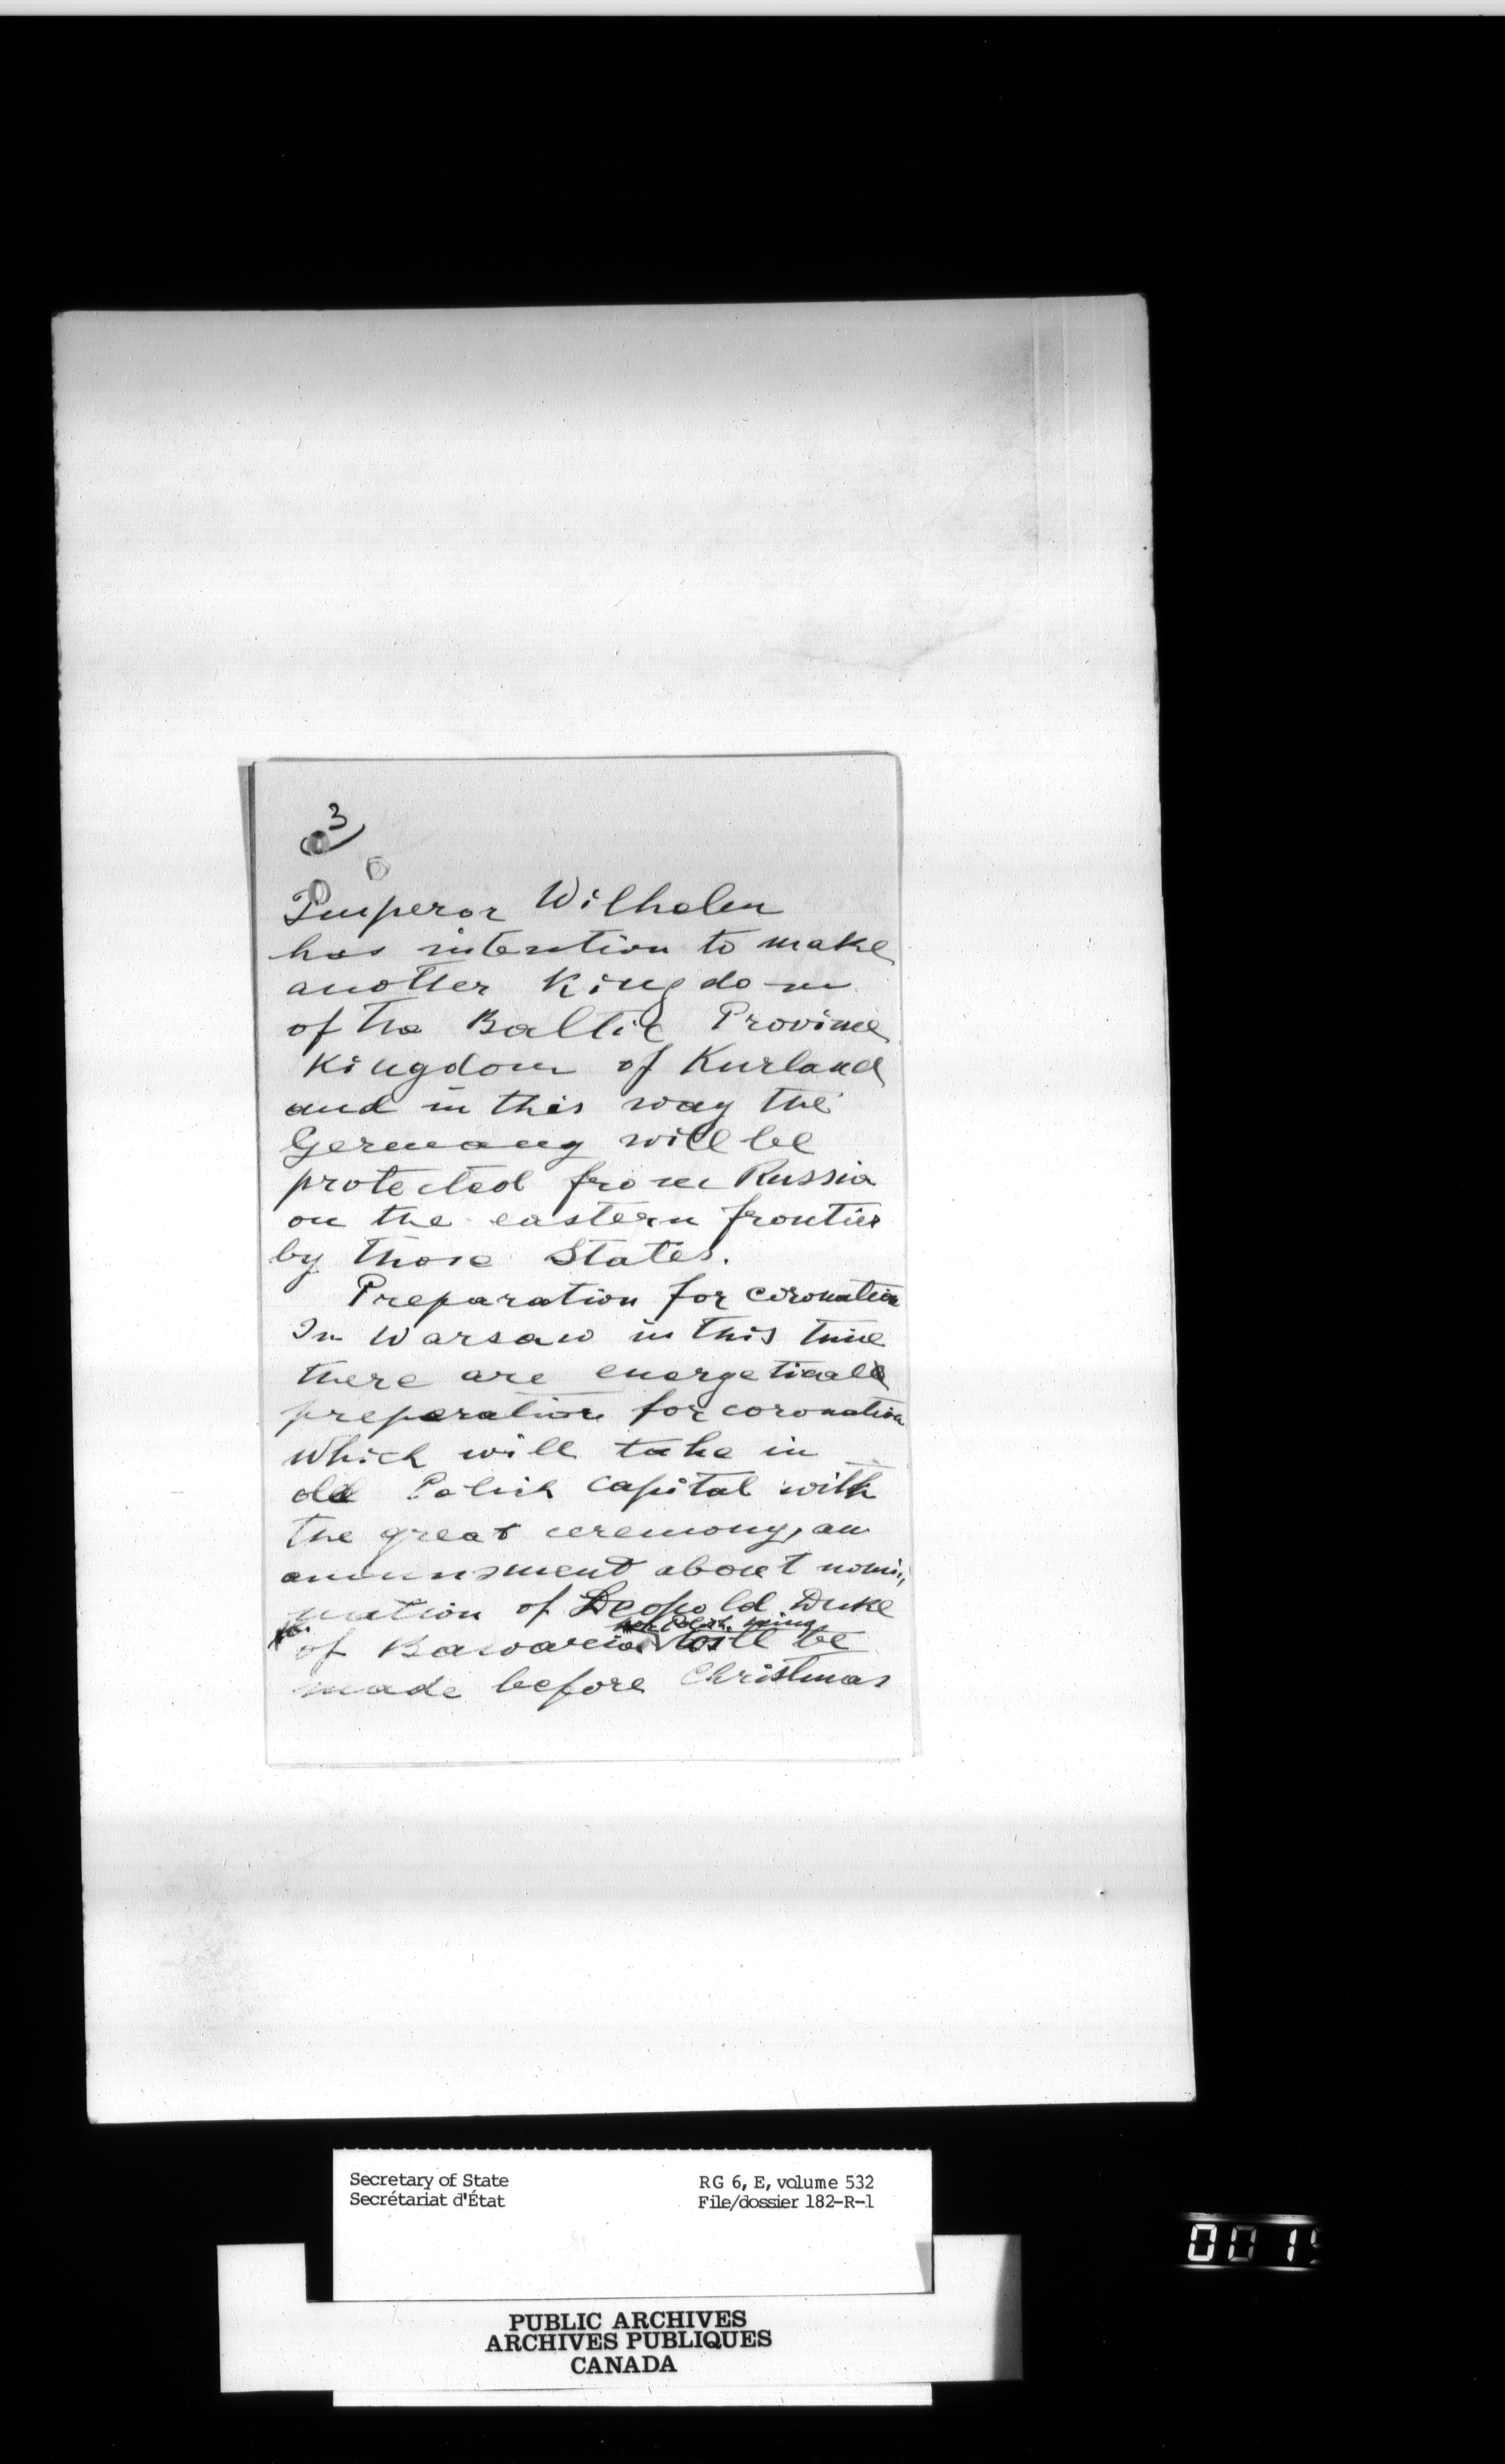 3
Imperor Wilhelm
has intention to make
another Kingdom
of the Baltic Provime
Kingdom of Kurland
and in this way the
Germany will be
protected from Russia
on the eastern frontier
by those States.
Preparation for coronation
In Warsaw in this time
there are energetical
preparation for coronation
which will take in
old Polish capital with
the great ceremony, an
anounsment about nomi„
nation of Leopold Duke
for Polish King
of Bawaria will be
made before Christmas
Secretary of State
Secrétariat d'État
RG 6, E, volume 532
File/dossier 182-R-1
PUBLIC ARCHIVES
ARCHIVES PUBLIQUES
CANADA
001